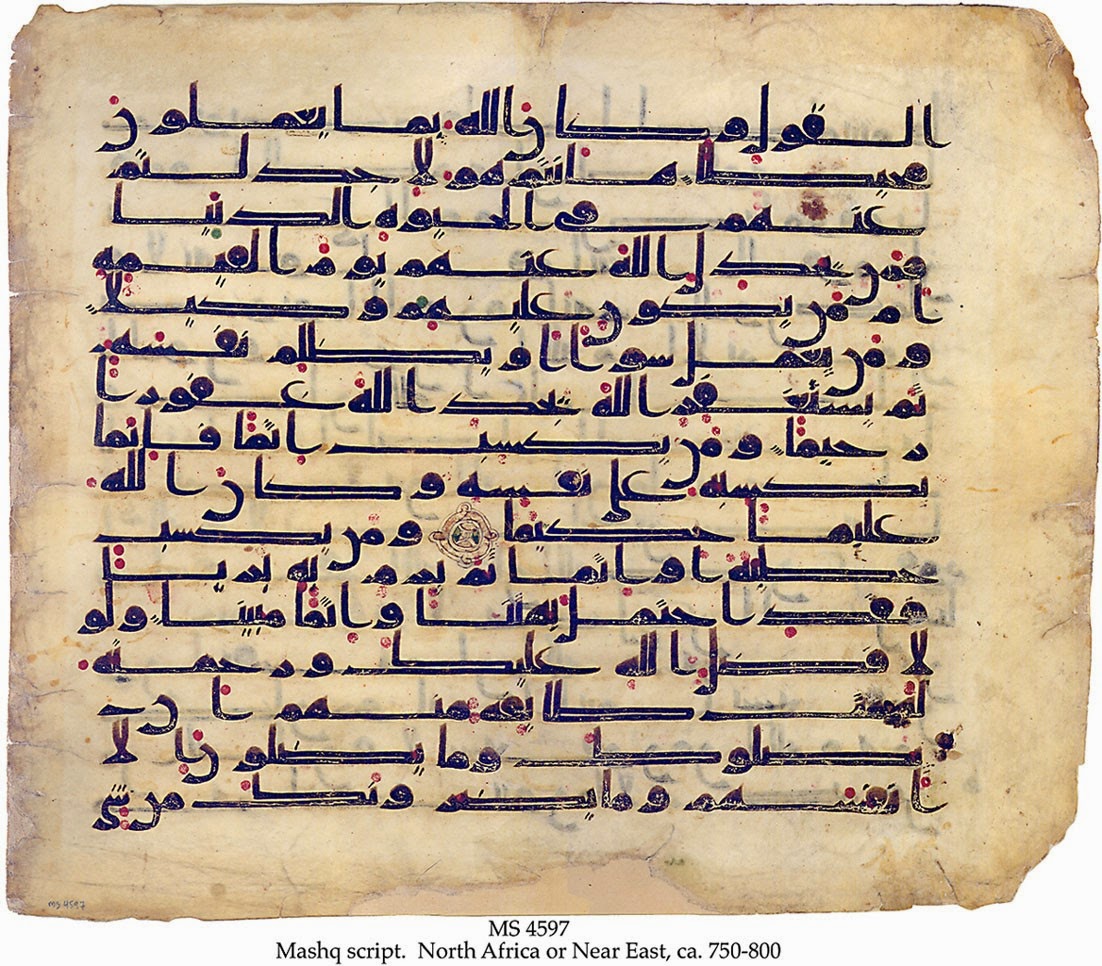 القول وكان الله بما يعملون
محيطا هانتم هولا جدلتم
عنهم في الحيوه الدنيا
فمن يجدل الله عنهم يوم القيمه
ام من يكون عليهم وكيلا
ومن يعمل سوا او يظلم نفسه
ثم يستغفر الله يجد الله غفورا
رحيما ومن يكسب اثما فانما
يكسبه على نفسه وكان الله
عليما حكيما ومن يكسب
خطيه او اثما ثم يرم به بريا
فقد احتمل بهتنا واثما مبينا ولو
لا فضل الله عليك ورحمته
لهمت طايفه منهم ان
يضلوك وما يضلون الا
انفسهم وما يضرونك من شي
MS 4597
MS 4597
Mashq script. North Africa or Near East, ca. 750-800